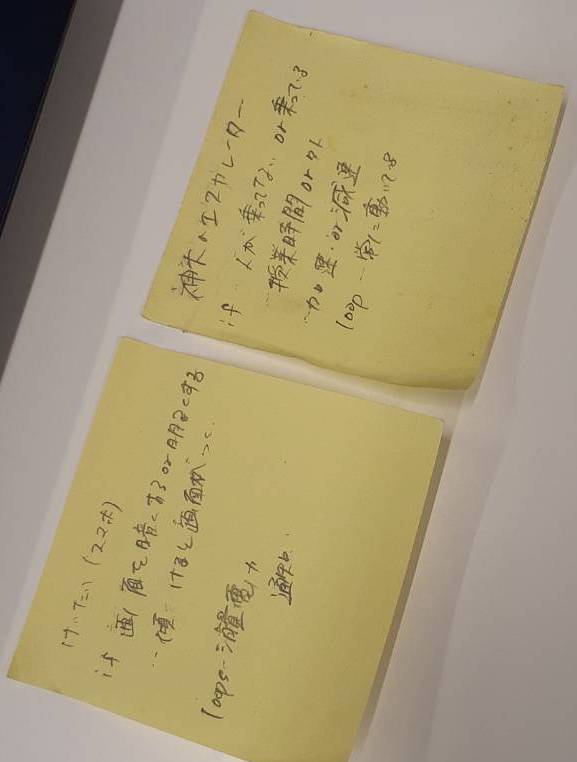 神大のエスカレーター
if 人が乗ってない or 乗っている
授業時間 or 外
…加速・or 減速
loop … 常に動いている
けいたい (スマホ)
if 画面を暗くする or 明るくする
…傾けると画面がつく
loop … 消費電力
通知